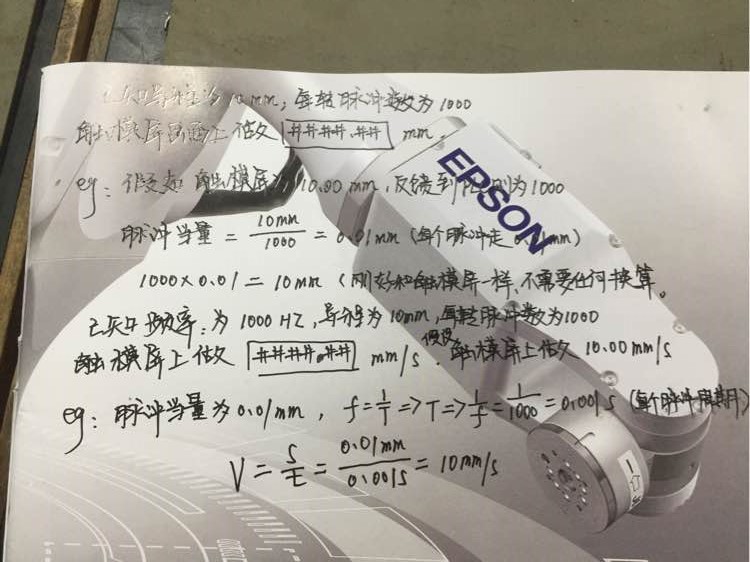 已知导程为10mm，每转脉冲数为1000
触摸屏画面上做成 ####.## mm，
eg：假设如触摸屏为10.00mm，反馈到PLC则为1000
EPSON
脉冲当量 = 10mm/1000 = 0.01mm（每个脉冲走0.01mm）
1000×0.01 = 10mm（刚好和触摸屏一样、不需要任何换算。
已知频率：为1000HZ，导程为10mm，每转脉冲数为1000
触摸屏上做成 ####.## mm/s．假设触摸屏上做成 10.00mm/s
eg：脉冲当量为0.01mm，f=1/T=>T=>1/f=1/1000=0.001s（每个脉冲周期）
V = S/t = 0.01mm/0.001s = 10mm/s